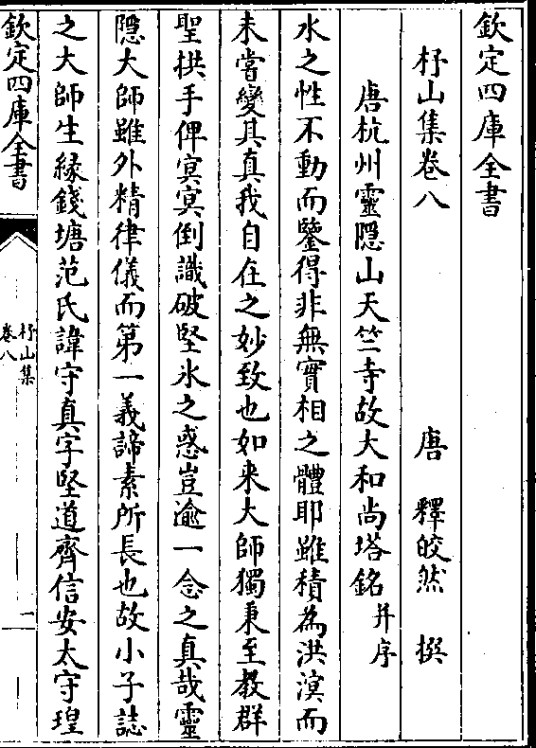 欽定四庫全書
杼山集卷八
唐 釋皎然 撰
唐杭州靈隱山天竺寺故大和尚塔銘并序
水之性不動而鑒得非無實相之體耶雖積為洪溟而
未嘗變其真我自在之妙致也如來大師獨秉至教群
聖拱手俾冥冥倒識破堅氷之惑豈逾一念之真哉靈
隱大師雖外精律儀而第一義諦素所長也故小子誌
之大師生緣錢塘范氏諱守真字堅道齊信安太守瑝
欽定四庫全書
杼山集
卷八
二